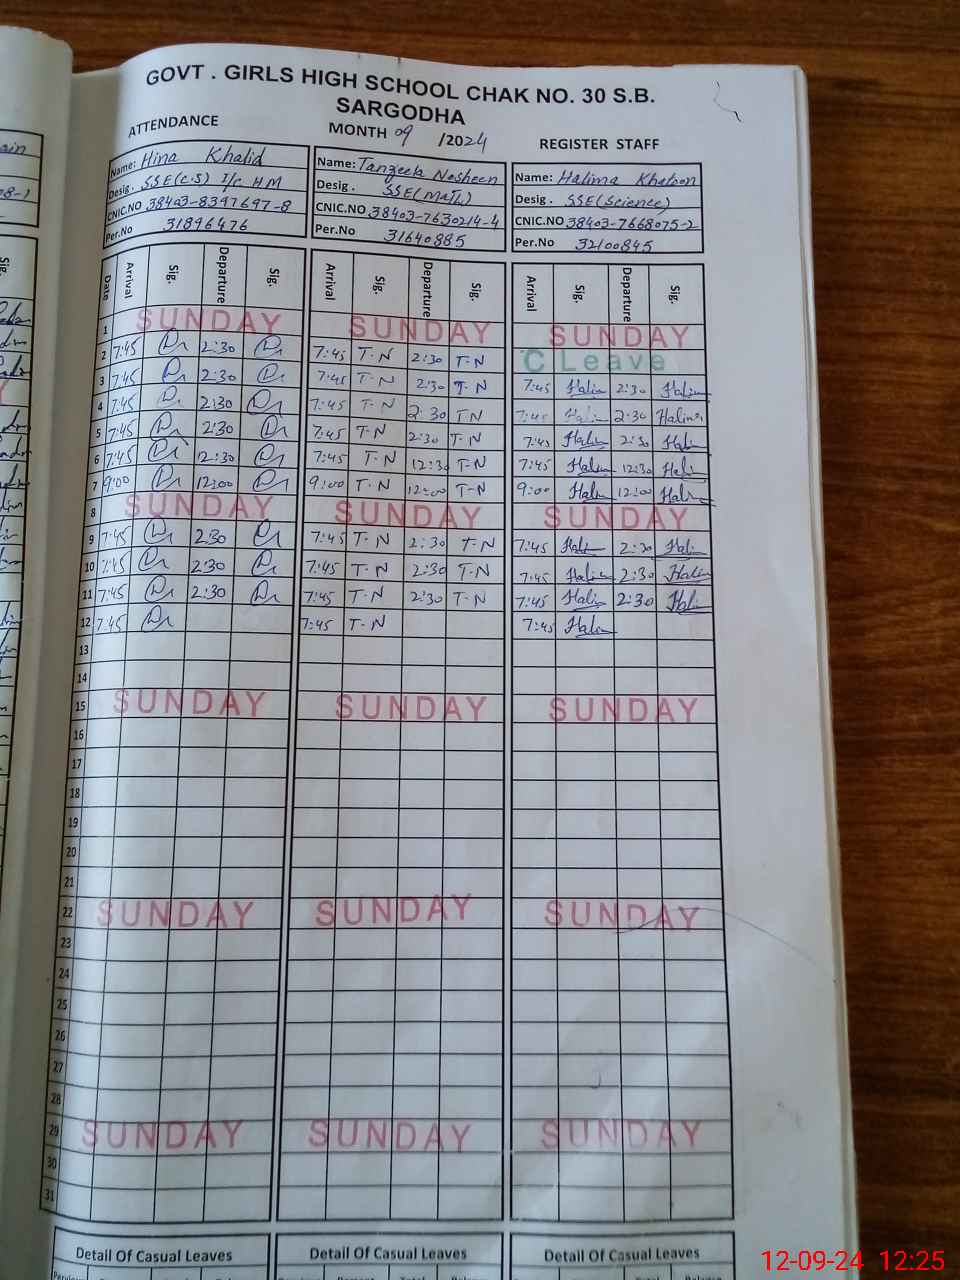 GOVT . GIRLS HIGH SCHOOL CHAK NO. 30 S.B.
SARGODHA
ATTENDANCE MONTH 09 /2024 REGISTER STAFF
Name: Hina Khalid
Desig. SSE(C.S) I/C HM
CNIC.NO 38403-8397697-8
Per.No 31896476
Name: Tanzeela Nosheen
Desig. SSE(Math)
CNIC.NO 38403-7630214-4
Per.No 31640885
Name: Halima Khatoon
Desig. SSE(Science)
CNIC.NO 38403-7668075-2
Per.No 32100845
Date Arrival Sig. Departure Sig. Arrival Sig. Departure Sig. Arrival Sig. Departure Sig.
1 SUNDAY SUNDAY SUNDAY
2 7:45 2:30 7:45 T-N 2:30 T-N C Leave
3 7:45 2:30 7:45 T-N 2:30 T-N 7:45 Halim 2:30 Halim
4 7:45 2:30 7:45 T-N 2:30 TN 7:45 2:30 Halima
5 7:45 2:30 7:45 T-N 2:30 T-N 7:45 Halim 2:30 Hali
6 7:45 12:30 7:45 T-N 12:30 T-N 7:45 Halim 12:30 Hali
7 9:00 12:00 9:00 T-N 12:00 T-N 9:00 Halim 12:00 Halim
8 SUNDAY SUNDAY SUNDAY
9 7:45 2:30 7:45 T-N 2:30 T-N 7:45 Hali 2:30 Hali
10 7:45 2:30 7:45 T-N 2:30 T-N 7:45 Halim 2:30 Halim
11 7:45 2:30 7:45 T-N 2:30 T-N 7:45 Halim 2:30 Hali
12 7:45 7:45 T-N 7:45 Halim
13
14
15 SUNDAY SUNDAY SUNDAY
16
17
18
19
20
21
22 SUNDAY SUNDAY SUNDAY
23
24
25
26
27
28
29 SUNDAY SUNDAY SUNDAY
30
31
Detail Of Casual Leaves Detail Of Casual Leaves Detail Of Casual Leaves
12-09-24 12:25